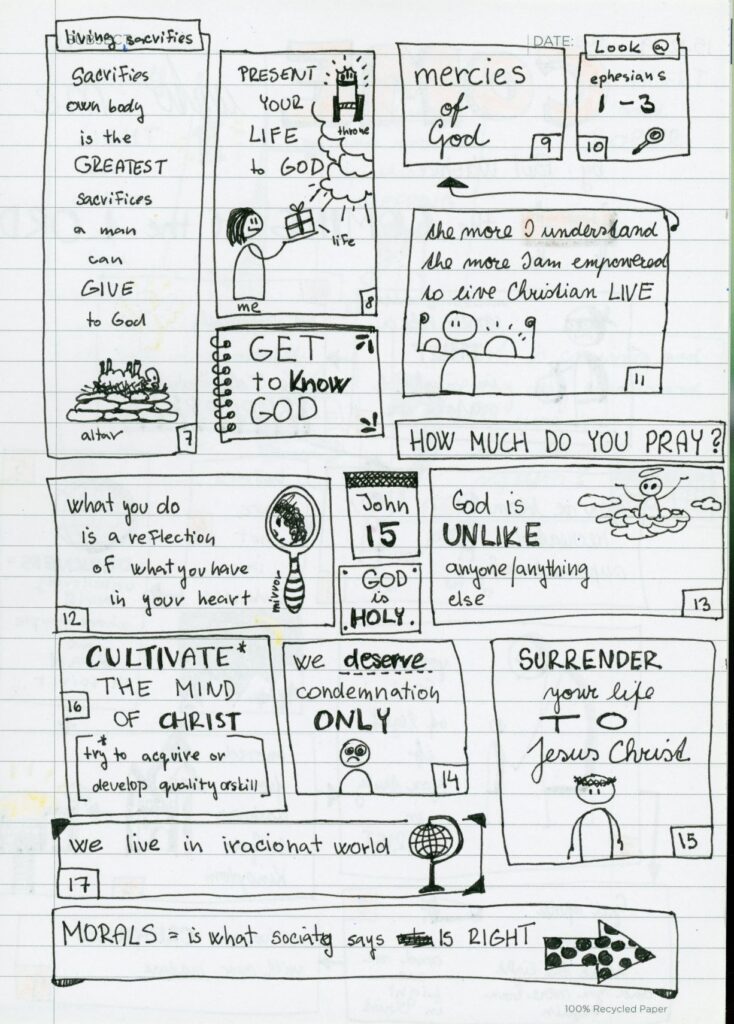 living sacrifies
Sacrifies
own body
is the
GREATEST
sacrifices
a man
can
GIVE
to God
altar
7
PRESENT
YOUR
LIFE
to GOD
throne
life
me
8
GET
to Know
GOD
DATE:
mercies
of
God
9
Look @
ephesians
1-3
10
the more I understand
the more I am empowered
to live Christian LIVE
11
HOW MUCH DO YOU PRAY?
what you do
is a reflection
of what you have
in your heart
mirror
12
John
15
GOD
is
HOLY.
God is
UNLIKE
anyone/anything
else
13
CULTIVATE*
THE MIND
OF CHRIST
16
*try to acquire or
develop quality or skill
we deserve
condemnation
ONLY
14
SURRENDER
your life
TO
Jesus Christ
15
we live in iracionat world
17
MORALS = is what sociaty says IS RIGHT
100% Recycled Paper